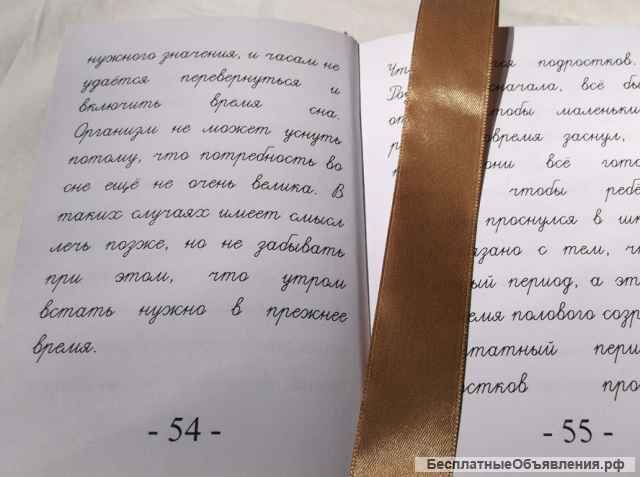 нужного значения, и часам не
удаётся перевернуться и
включить время сна.
Организм не может уснуть
потому, что потребность во
сне ещё не очень велика. В
таких случаях имеет смысл
лечь позже, но не забывать
при этом, что утром
встать нужно в прежнее
время.
- 54 -
подростков.
сначала, всё
чтобы
время заснул,
они всё
чтобы
проснулся в
с тем,
период, а
полового
пери
про
- 55 -
БесплатныеОбъявления.рф